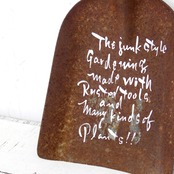 The junk style
Gardening
made with
Ruston tools
and
Many kinds of
Plants!!